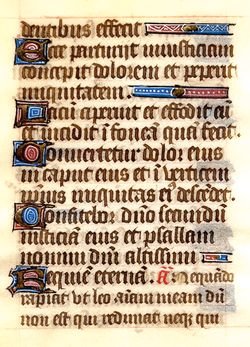 dentibus effecit
Ecce parturit iniusticiam
concepit dolorem et peperit
iniquitatem
Lacum aperuit et effodit eū
et incidit ī foueā quā fecit
Conuertetur dolor eius
in caput eius et ī uerticem
ipsius iniquitas eī descēdet
Confitebor dn̄o secundū
iusticiā eius et psallam
nomini dn̄i altissimi
Requiē eternā. añ Nequādo
rapiat ut leo aīam meam dū
non est qui redimat neqȝ qui